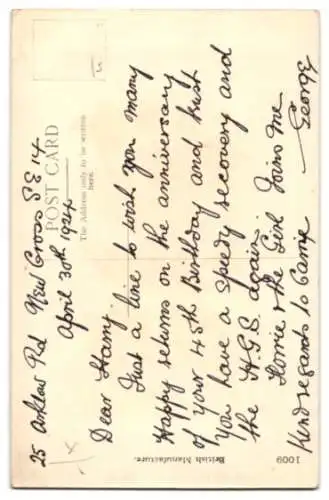 25 Arklow Rd New Cross S E 14.
April 30th 1924
POST CARD
The Address only to be written
here.
Dear Stamp,
Just a line to wish you many
Happy returns on the anniversary
of your 45th Birthday and trust
you have a speedy recovery and
the H.G.S. again.
Florrie & the Girl Joins me
Kind regards to Carrie
George
British Manufacture.
1009